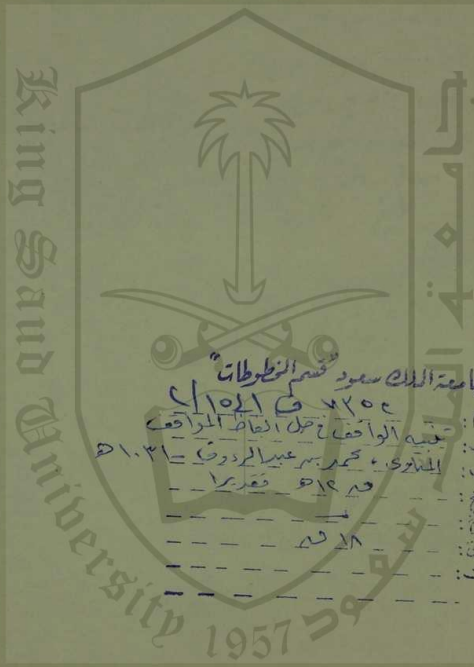 King Saud University
جامعة الملك سعود
1957
جامعة الملك سعود "قسم المخطوطات"
٧٣٥٢ ف ١٥٤١/٢
تنبيه الواقف في حل الفاظ المواقف
المناوى، محمد بن عبدالرءوف - ١٠٣١ هـ
ق ١٢ هـ تقديرا
١٨ ق